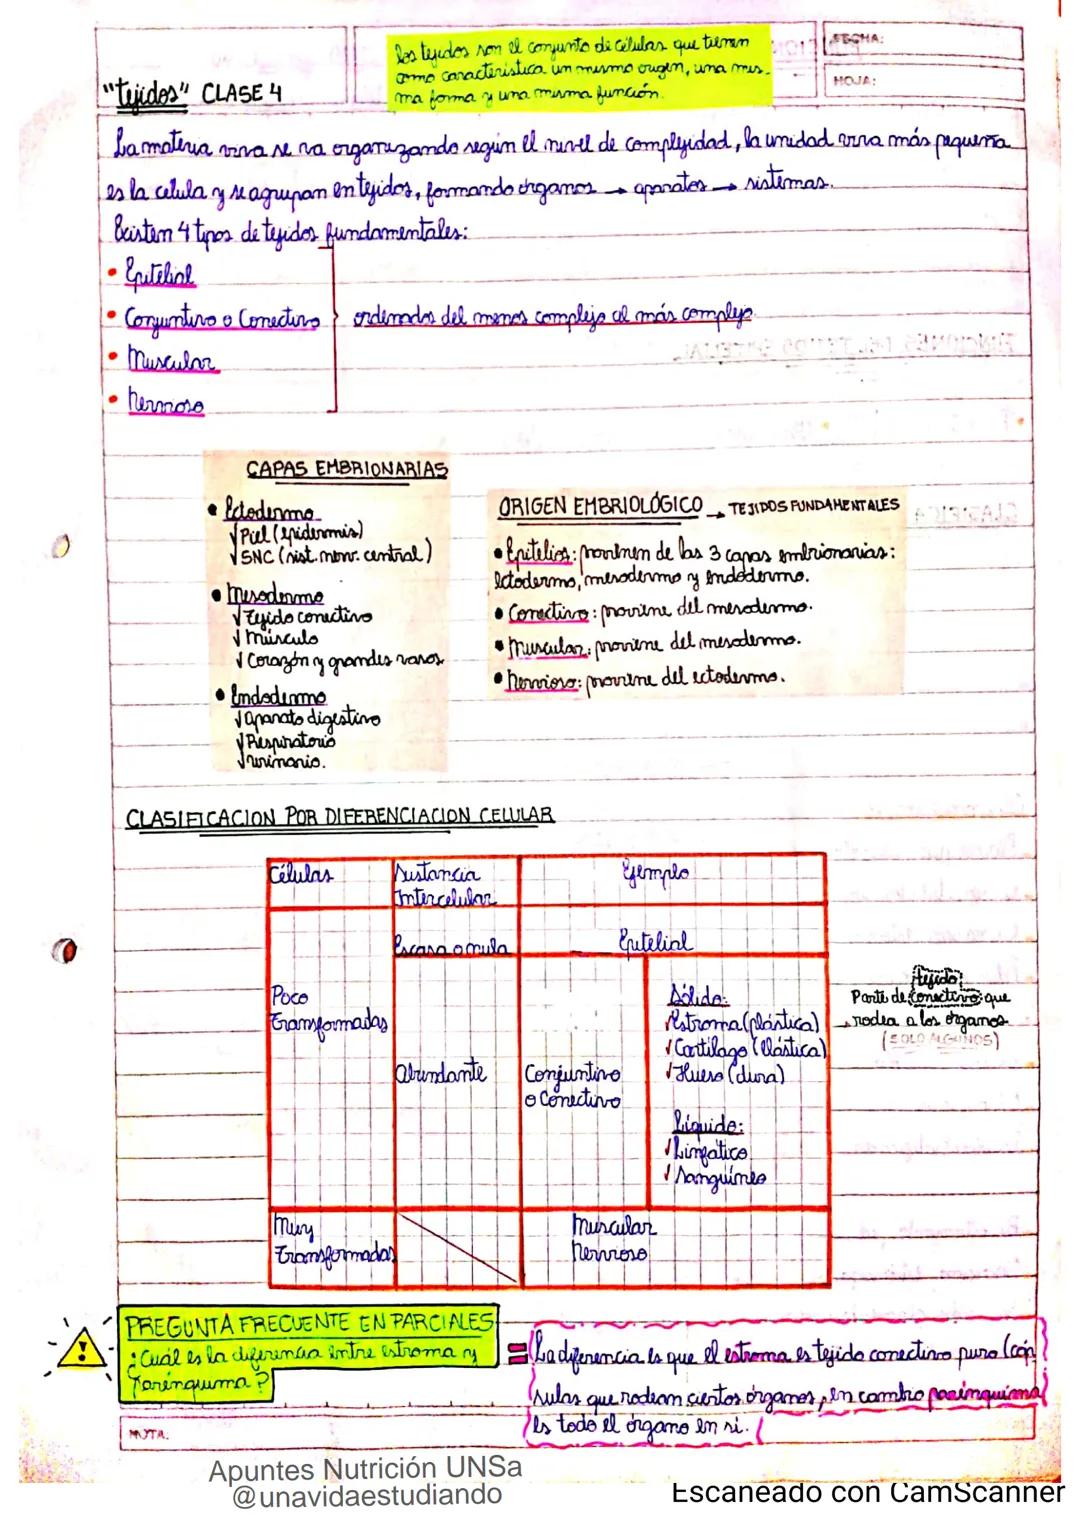 los tejidos son el conjunto de células que tienen
como característica un mismo origen, una mis-
ma forma y una misma función.
FECHA:
HOJA:
"tejidos" CLASE 4
La materia viva se va organizando según el nivel de complejidad, la unidad viva más pequeña
es la celula y se agrupan en tejidos, formando órganos → aparatos → sistemas.
Existen 4 tipos de tejidos fundamentales:
• Epitelial
• Conjuntivo o Conectivo
• Muscular
• Nervioso
ordenados del menos complejo al más complejo
CAPAS EMBRIONARIAS
• Ectodermo
√ Piel (epidermis)
√ SNC (sist. nerv. central)
• Mesodermo
√ Tejido conectivo
√ Músculo
√ Corazón y grandes vasos
• Endodermo
√ aparato digestivo
√ Respiratorio
√ urinario.
ORIGEN EMBRIOLÓGICO → TEJIDOS FUNDAMENTALES
• Epitelios: provienen de las 3 capas embrionarias:
Ectodermo, mesodermo y endodermo.
• Conectivo: proviene del mesodermo.
• Muscular: proviene del mesodermo.
• Nervioso: proviene del ectodermo.
CLASIFICACION POR DIFERENCIACION CELULAR
Células
Sustancia
Intercelular
Ejemplo
Escasa o nula
Epitelial
Poco
Transformadas
Abundante
Conjuntivo
o Conectivo
Sólido:
√ Estroma (plástica)
√ Cartílago (elástica)
√ Hueso (dura)
Líquido:
√ Linfático
√ Sanguíneo
tejido:
Parte de conectivo que
rodea a los órganos
(SOLO ALGUNOS)
Muy
Transformadas
Muscular
Nervioso
PREGUNTA FRECUENTE EN PARCIALES
¿Cuál es la diferencia entre estroma y
Parénquima?
= La diferencia es que el estroma es tejido conectivo puro (cáp
sulas que rodean ciertos órganos, en cambio parénquima
es todo el órgano en sí.
NOTA:
Apuntes Nutrición UNSa
@unavidaestudiando
Escaneado con CamScanner